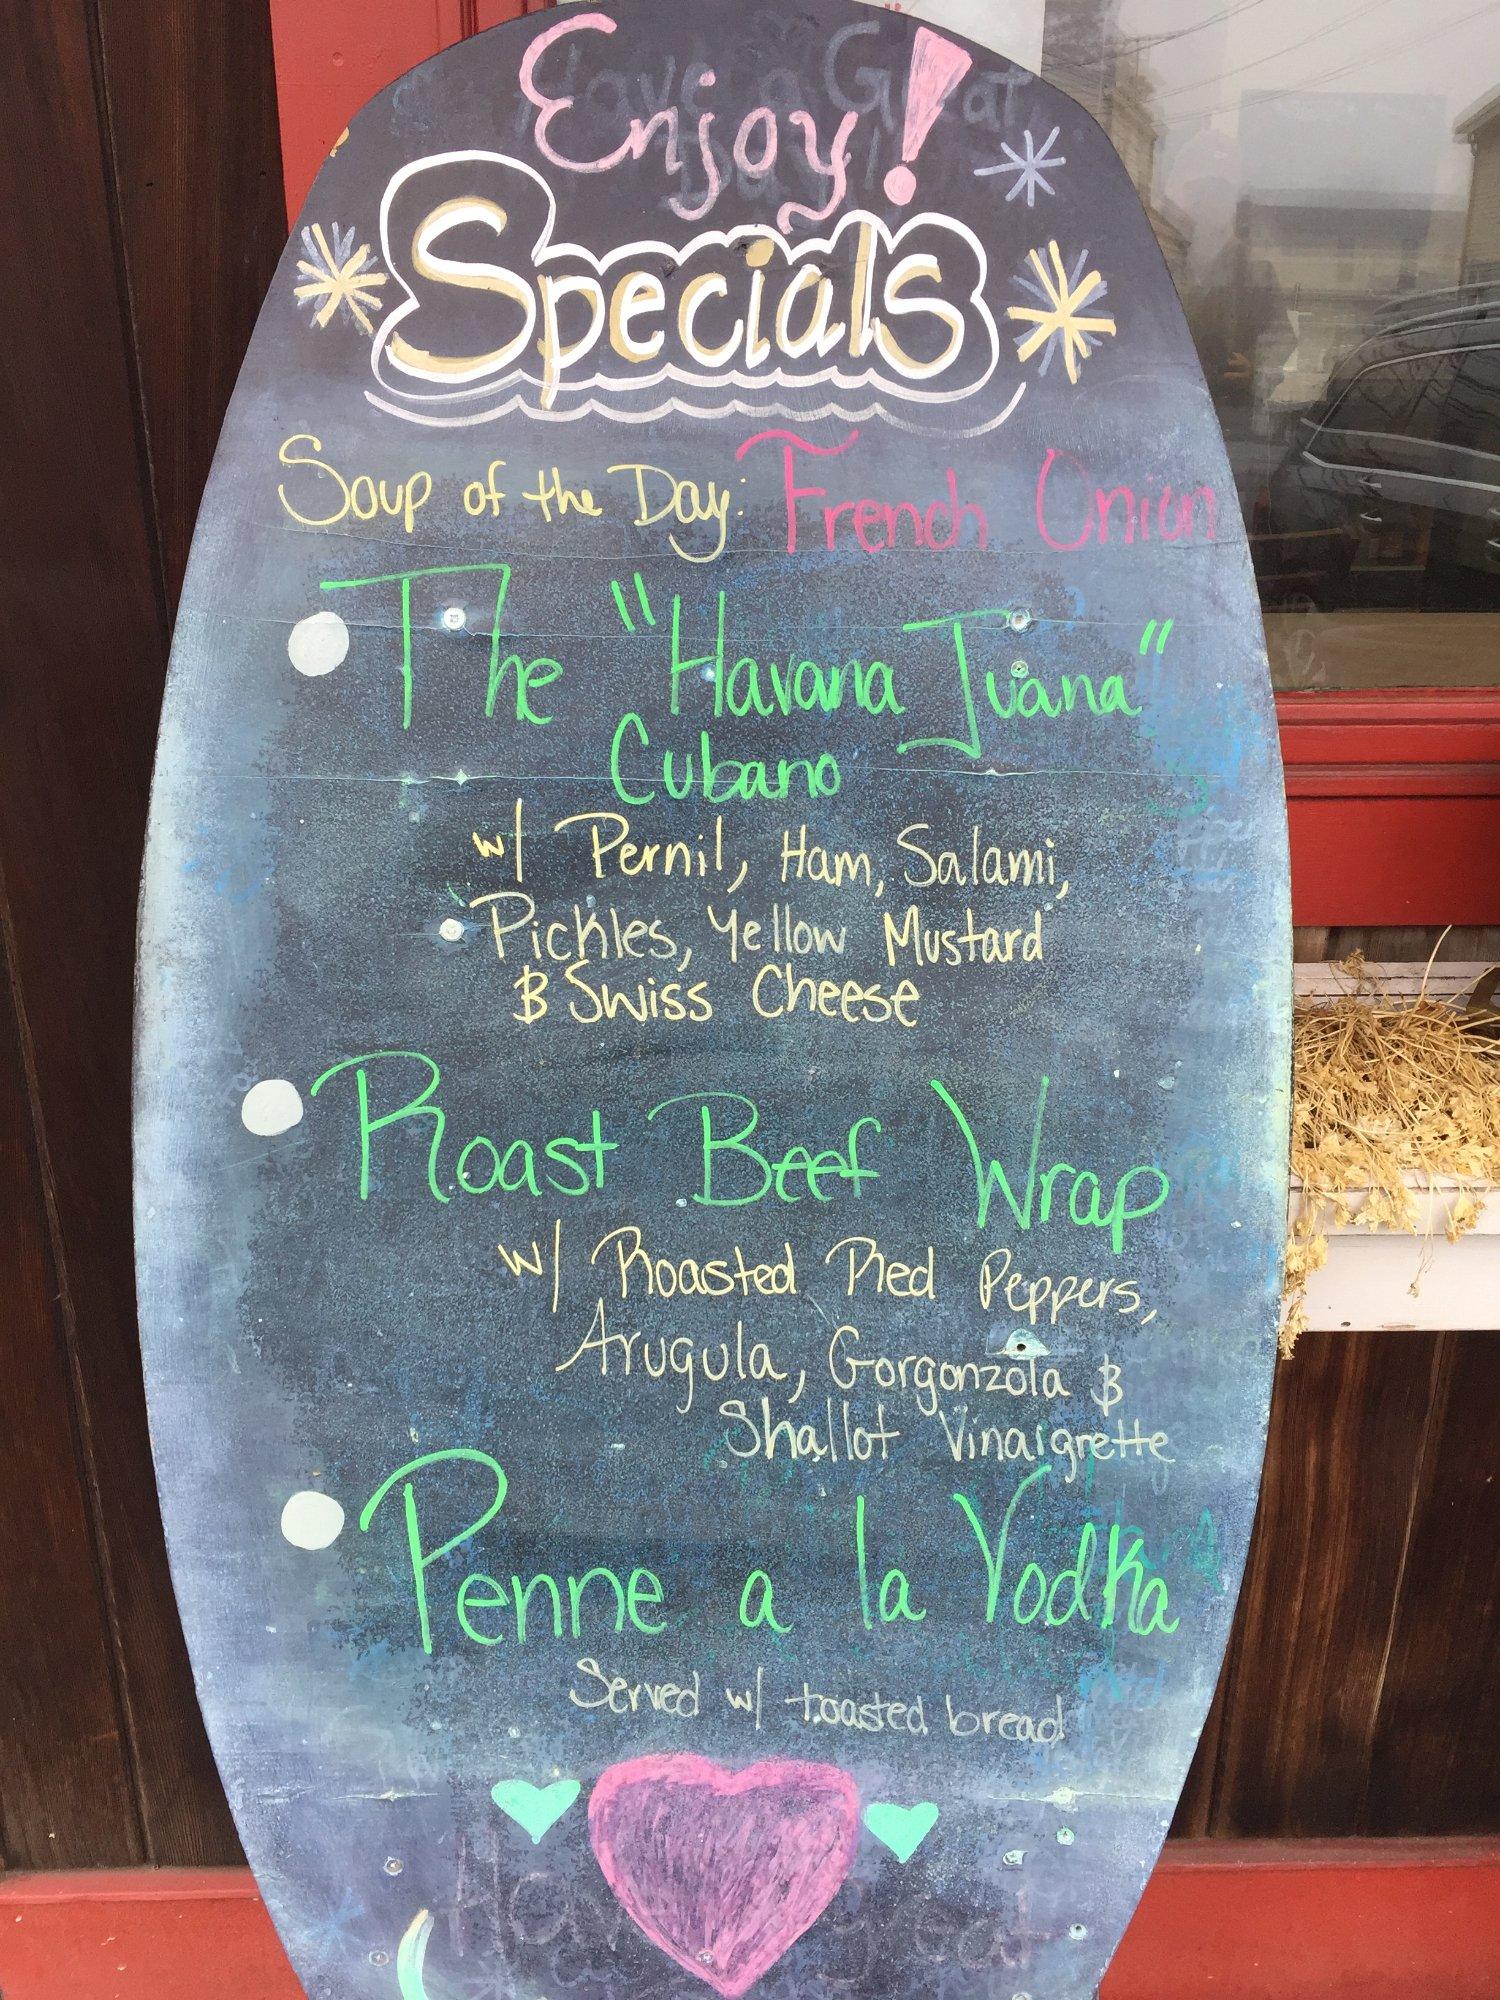 Enjoy!
Specials
Soup of the Day: French Onion
The "Havana Juana"
Cubano
w/ Pernil, Ham, Salami,
Pickles, Yellow Mustard
& Swiss Cheese
Roast Beef Wrap
w/ Roasted Red Peppers,
Arugula, Gorgonzola &
Shallot Vinaigrette
Penne a la Vodka
Served w/ toasted bread